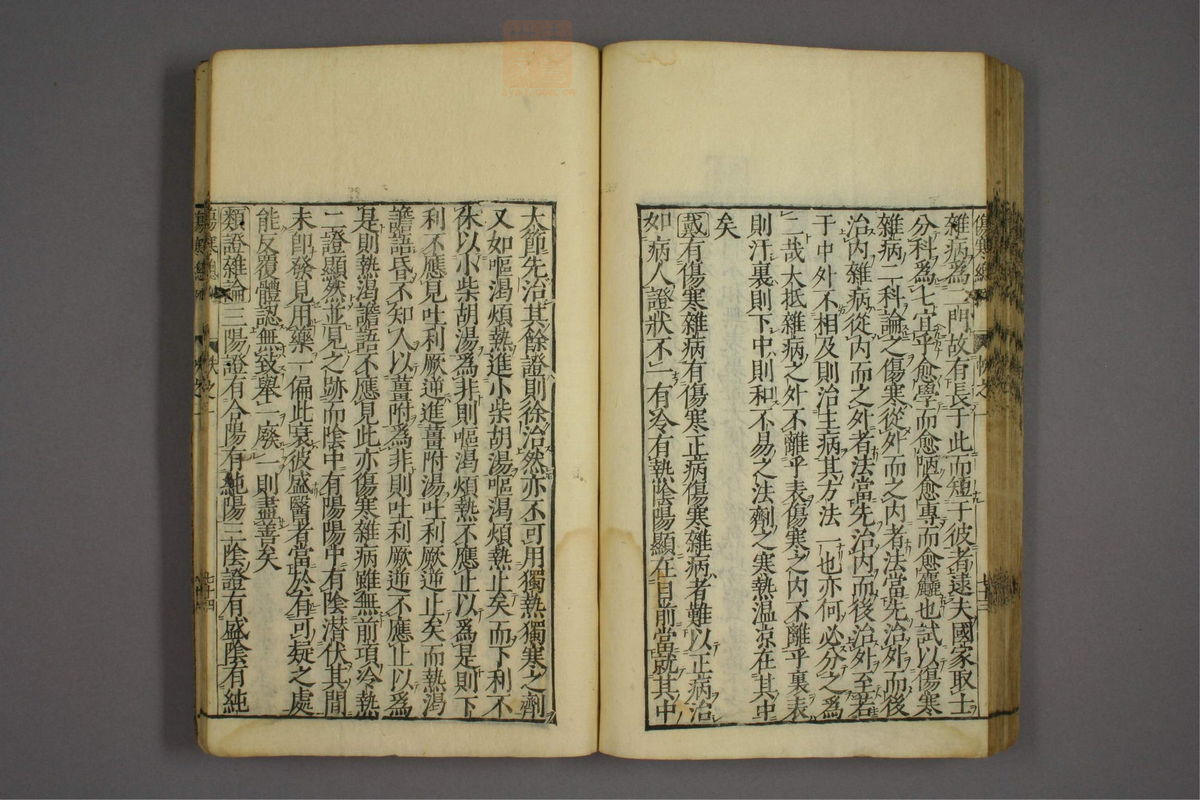 雜病爲一門故有長于此而短于彼者遠夫國家取士
分科爲七宜乎愈學而愈陋愈專而愈麤也試以傷寒
雜病二科論之傷寒從外而之内者法當先治外而後
治内雜病從内而之外者法當先治内而後治外至若
于中外不相及則治主病其方法一也亦何必分之爲
二哉大抵雜病之外不離乎表傷寒之内不離乎裏表
則汗裏則下中則和不易之法劑之寒熱温凉在其中
矣
戴有傷寒雜病有傷寒正病傷寒雜病者難以正病治
如病人證狀不一有冷有熱陰陽顯在目前當就其中
大節先治其餘證則徐治然亦不可用獨熱獨寒之劑
又如嘔渴煩熱進小柴胡湯嘔渴煩熱止矣而下利不
休以小柴胡湯爲非則嘔渴煩熱不應止以爲是則下
利不應見吐利厥逆進薑附湯吐利厥逆止矣而熱渴
譫語昏不知人以薑附爲非則吐利厥逆不應止以爲
是則熱渴譫語不應見此亦傷寒雜病雖無前項冷熱
二證顯然並見之跡而陰中有陽陽中有陰潜伏其間
未卽發見用藥一偏此衰彼盛醫者當於有可疑之處
能反覆體認無致舉一廢一則盡善矣
類證雜論三陽證有合陽有純陽三陰證有盛陰有純